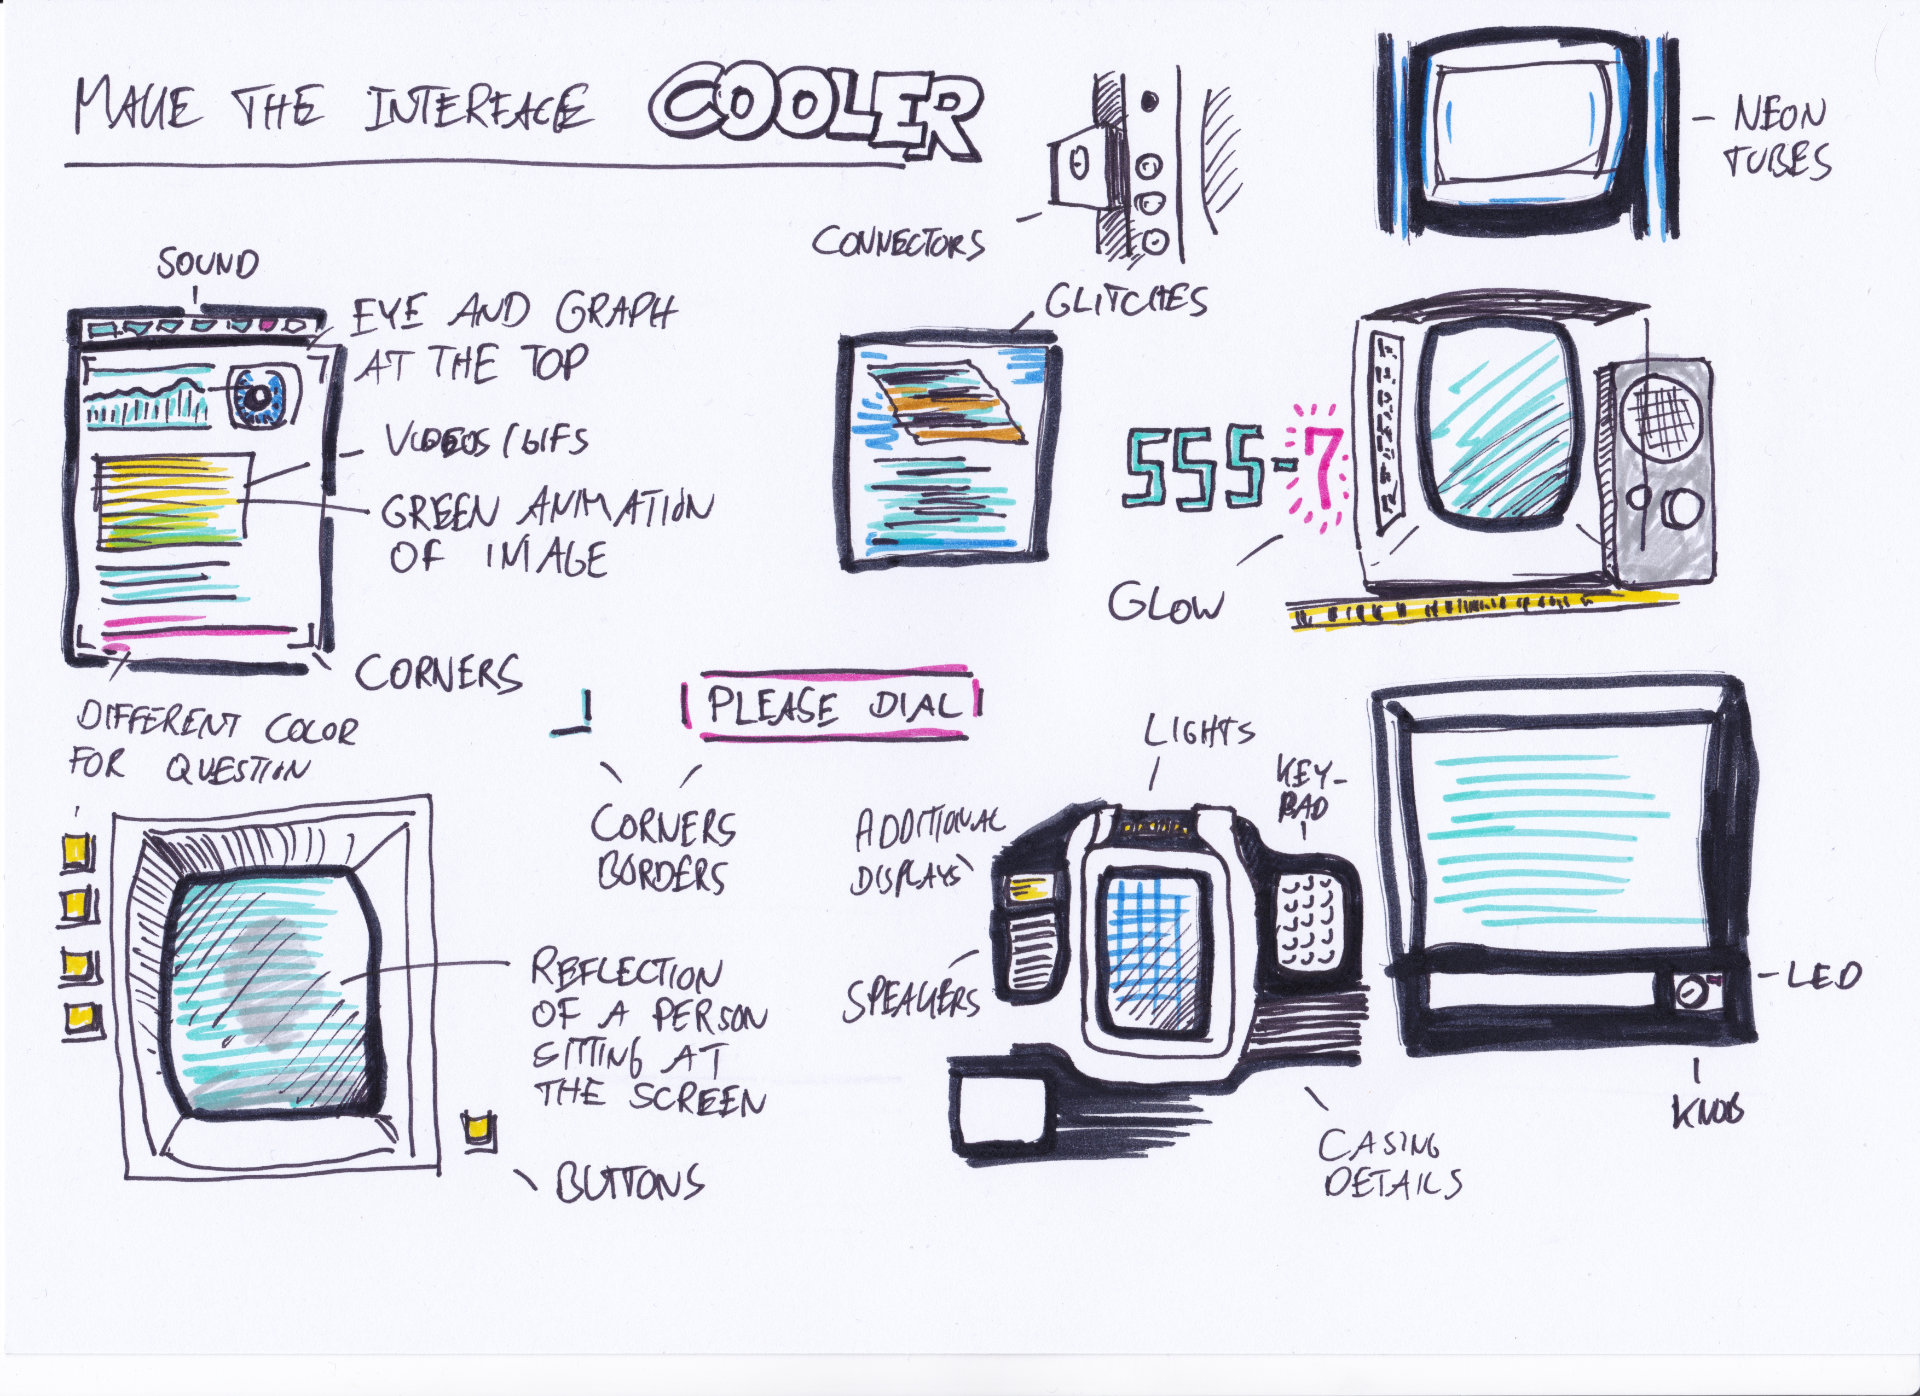 MAKE THE INTERFACE COOLER
NEON
TUBES
CONNECTORS
SOUND
EYE AND GRAPH
AT THE TOP
VIDEOS/GIFS
GREEN ANIMATION
OF IMAGE
CORNERS
DIFFERENT COLOR
FOR QUESTION
GLITCHES
555-7
GLOW
PLEASE DIAL
CORNERS
BORDERS
LIGHTS
KEY-
PAD
ADDITIONAL
DISPLAYS
SPEAKERS
LED
KNOB
CASING
DETAILS
REFLECTION
OF A PERSON
SITTING AT
THE SCREEN
BUTTONS